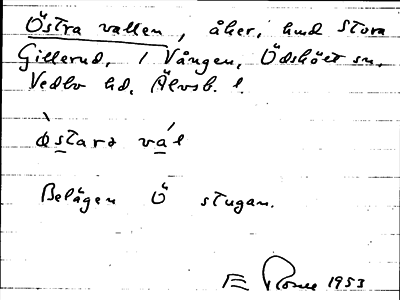 Östra vallen, åker, hmd Stora
Gillerud, 1 Vången, Ödskölt sn,
Vedbo hd, Älvsb. l.
val
Belägen Ö stugan.
1953